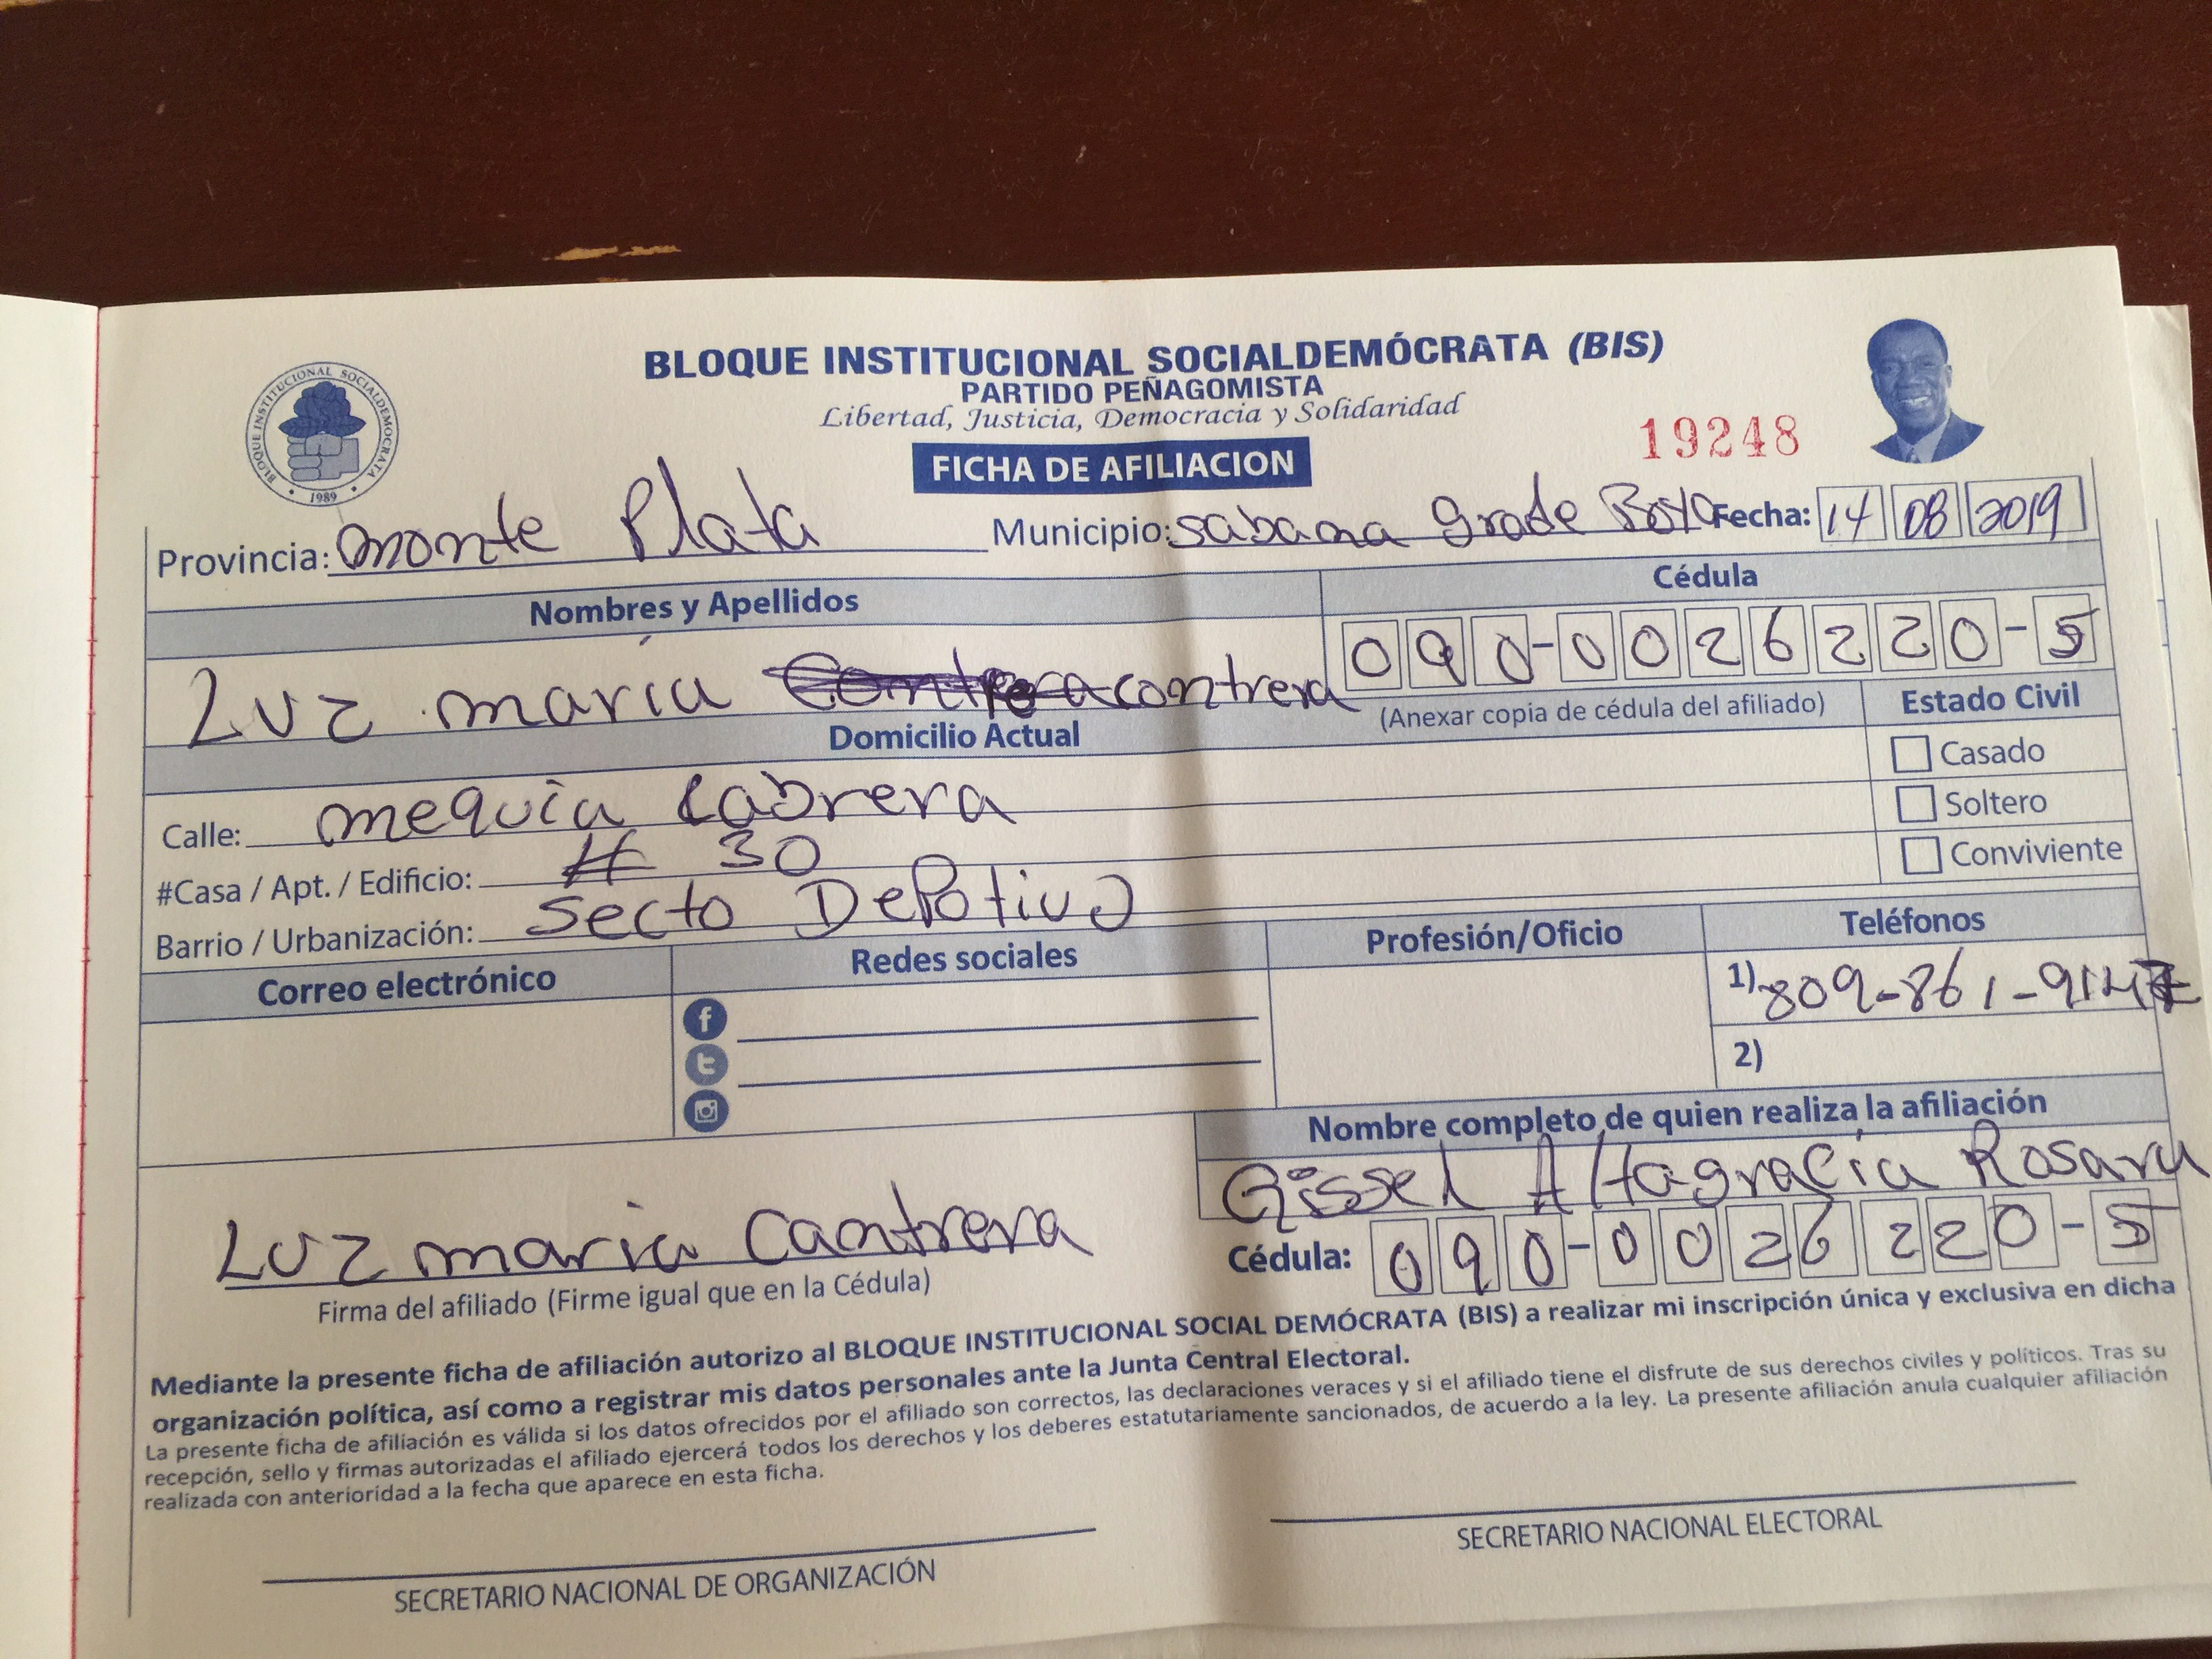 BLOQUE INSTITUCIONAL SOCIALDEMÓCRATA (BIS)
PARTIDO PEÑAGOMISTA
Libertad, Justicia, Democracia y Solidaridad
BLOQUE INSTITUCIONAL SOCIALDEMOCRATA
1989
19248
FICHA DE AFILIACION
Provincia: monte Plata Municipio: sabana grade Boya Fecha: 14 08 2019
Nombres y Apellidos Cédula
Luz maria contrera 090-0026220-5
(Anexar copia de cédula del afiliado) Estado Civil
Domicilio Actual
Casado
Calle: mequia Cabrera
Soltero
#Casa / Apt. / Edificio: # 30
Conviviente
Barrio / Urbanización: Secto DePotivo
Correo electrónico Redes sociales Profesión/Oficio Teléfonos
1) 809-861-9147
2)
Nombre completo de quien realiza la afiliación
Gissel Altagracia Rosaru
Luz maria Cantrera
Cédula: 090-0026220-5
Firma del afiliado (Firme igual que en la Cédula)
Mediante la presente ficha de afiliación autorizo al BLOQUE INSTITUCIONAL SOCIAL DEMÓCRATA (BIS) a realizar mi inscripción única y exclusiva en dicha
organización política, así como a registrar mis datos personales ante la Junta Central Electoral.
La presente ficha de afiliación es válida si los datos ofrecidos por el afiliado son correctos, las declaraciones veraces y si el afiliado tiene el disfrute de sus derechos civiles y políticos. Tras su
recepción, sello y firmas autorizadas el afiliado ejercerá todos los derechos y los deberes estatutariamente sancionados, de acuerdo a la ley. La presente afiliación anula cualquier afiliación
realizada con anterioridad a la fecha que aparece en esta ficha.
SECRETARIO NACIONAL DE ORGANIZACIÓN SECRETARIO NACIONAL ELECTORAL